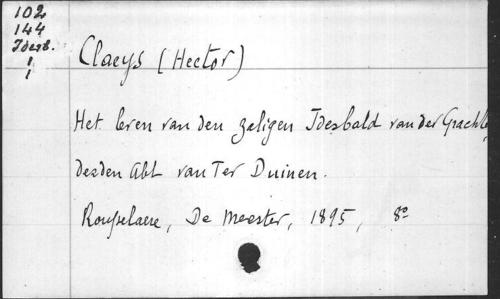 102
144
Idesb.
1
1
Claeys (Hector)
Het leven van den zaligen Idesbald van der Gracht
derden Abt van Ter Duinen.
Rousselaere, De Meester, 1895, 8°